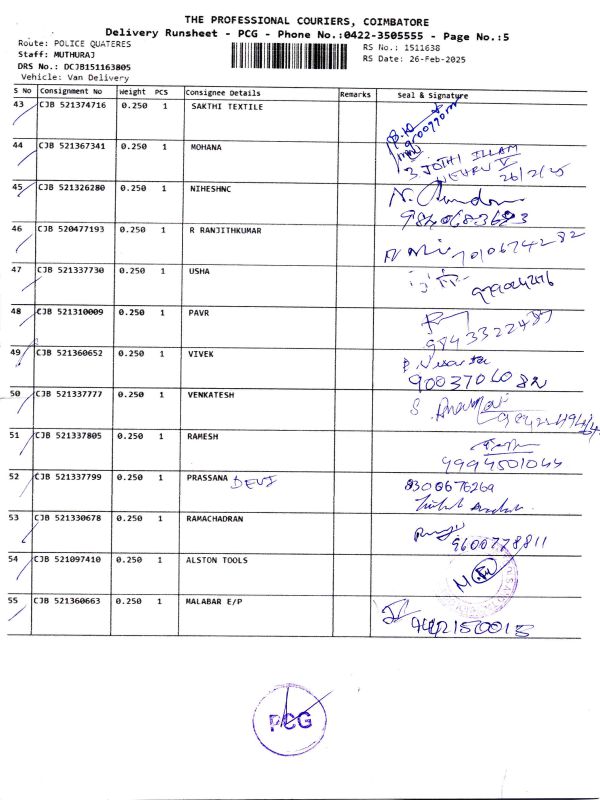 THE PROFESSIONAL COURIERS, COIMBATORE
Delivery Runsheet - PCG - Phone No.:0422-3505555 - Page No.:5
Route: POLICE QUATERES
RS No.: 1511638
Staff: MUTHURAJ
RS Date: 26-Feb-2025
DRS No.: DCJB151163805
Vehicle: Van Delivery
S No Consignment No Weight PCS Consignee Details Remarks Seal & Signature
43 CJB 521374716 0.250 1 SAKTHI TEXTILE
44 CJB 521367341 0.250 1 MOHANA
3 JOTHI ILLAM
NEHRU V
26/2/25
45 CJB 521326280 0.250 1 NIHESHNC
9840683693
46 CJB 520477193 0.250 1 R RANJITHKUMAR
7010674282
47 CJB 521337730 0.250 1 USHA
48 CJB 521310009 0.250 1 PAVR
49 CJB 521360652 0.250 1 VIVEK
9003706082
50 CJB 521337777 0.250 1 VENKATESH
51 CJB 521337805 0.250 1 RAMESH
9994501044
52 CJB 521337799 0.250 1 PRASSANA DEVI
9300676269
53 CJB 521330678 0.250 1 RAMACHADRAN
9600778811
54 CJB 521097410 0.250 1 ALSTON TOOLS
55 CJB 521360663 0.250 1 MALABAR E/P
9442150015
PCG